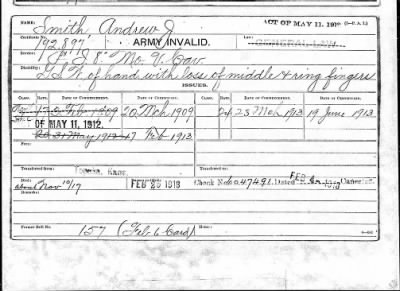 NAME:
ACT OF MAY 11, 1912
Smith, Andrew J.
Certificate No.
792,897
ARMY INVALID.
GENERAL LAW.
J. 8" Mo. V. Cav.
Disability:
G.S.W. of hand with loss of middle & ring fingers
ISSUES.
CLASS. RATE. DATE OF COMMENCEMENT. DATE OF CERTIFICATE. CLASS. RATE. DATE OF COMMENCEMENT. DATE OF CERTIFICATE.
17 Feb 1909 20 Mch 1909 23 Mch 1913 19 June 1913
OF MAY 11, 1912.
31 May 1912 7 Feb 1913
Topeka Kans.
Died:
about Nov 10/17
FEB 26 1918
Check No. 47491 Dated FEB Canceled.
Former Roll No.
157 (Feb 6 Card)